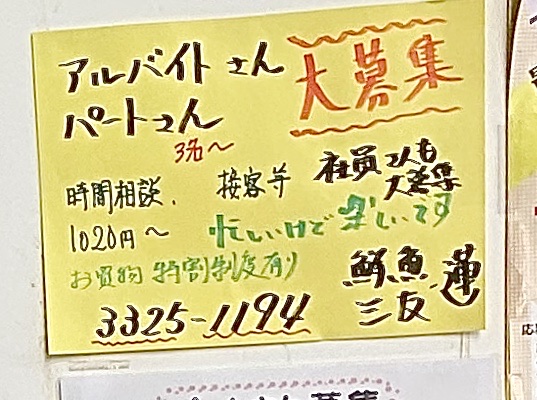 アルバイトさん
パートさん
3名〜
大募集
時間相談、
接客等
社員さんも
大募集
1020円〜
忙しいけど楽しいです
お買物特割制度有り
鮮魚
三友
蓮
3325-1194